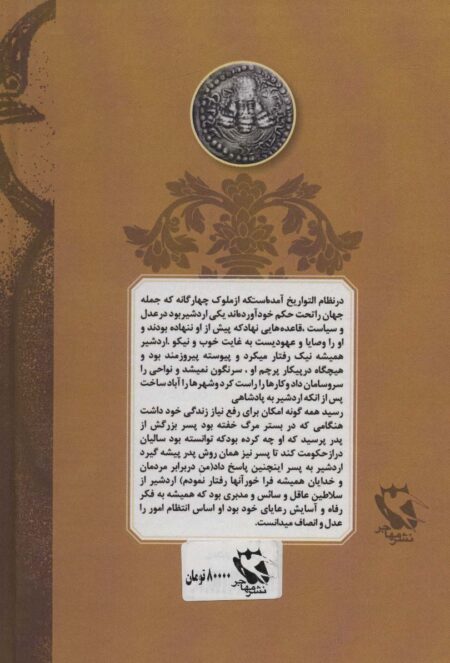 در نظام التواریخ آمده‌است‌که از ملوک چهارگانه که جمله
جهان را تحت حکم خودآورده‌اند یکی اردشیربود در عدل
و سیاست ، قاعده‌هایی نهادکه پیش از او ننهاده بودند و
او را وصایا و عهودیست به غایت خوب و نیکو .اردشیر
همیشه نیک رفتار میکرد و پیوسته پیروزمند بود و
هیچگاه درپیکار پرچم او ، سرنگون نمیشد و نواحی را
سروسامان داد وکارها را راست کرد وشهرها را آباد ساخت
پس از انکه اردشیر به پادشاهی
رسید همه گونه امکان برای رفع نیاز زندگی خود داشت
هنگامی که در بستر مرگ خفته بود پسر بزرگش از
پدر پرسید که او چه کرده بودکه توانسته بود سالیان
درازحکومت کند تا پسر نیز همان روش پدر پیشه گیرد
اردشیر به پسر اینچنین پاسخ داد(من دربرابر مردمان
و خدایان همیشه فرا خورآنها رفتار نمودم) اردشیر از
سلاطین عاقل و سائس و مدبری بود که همیشه به فکر
رفاه و آسایش رعایای خود بود او اساس انتظام امور را
عدل و انصاف میدانست.
نشر مهاجر
نشر مهاجر
۸۰۰۰۰ تومان